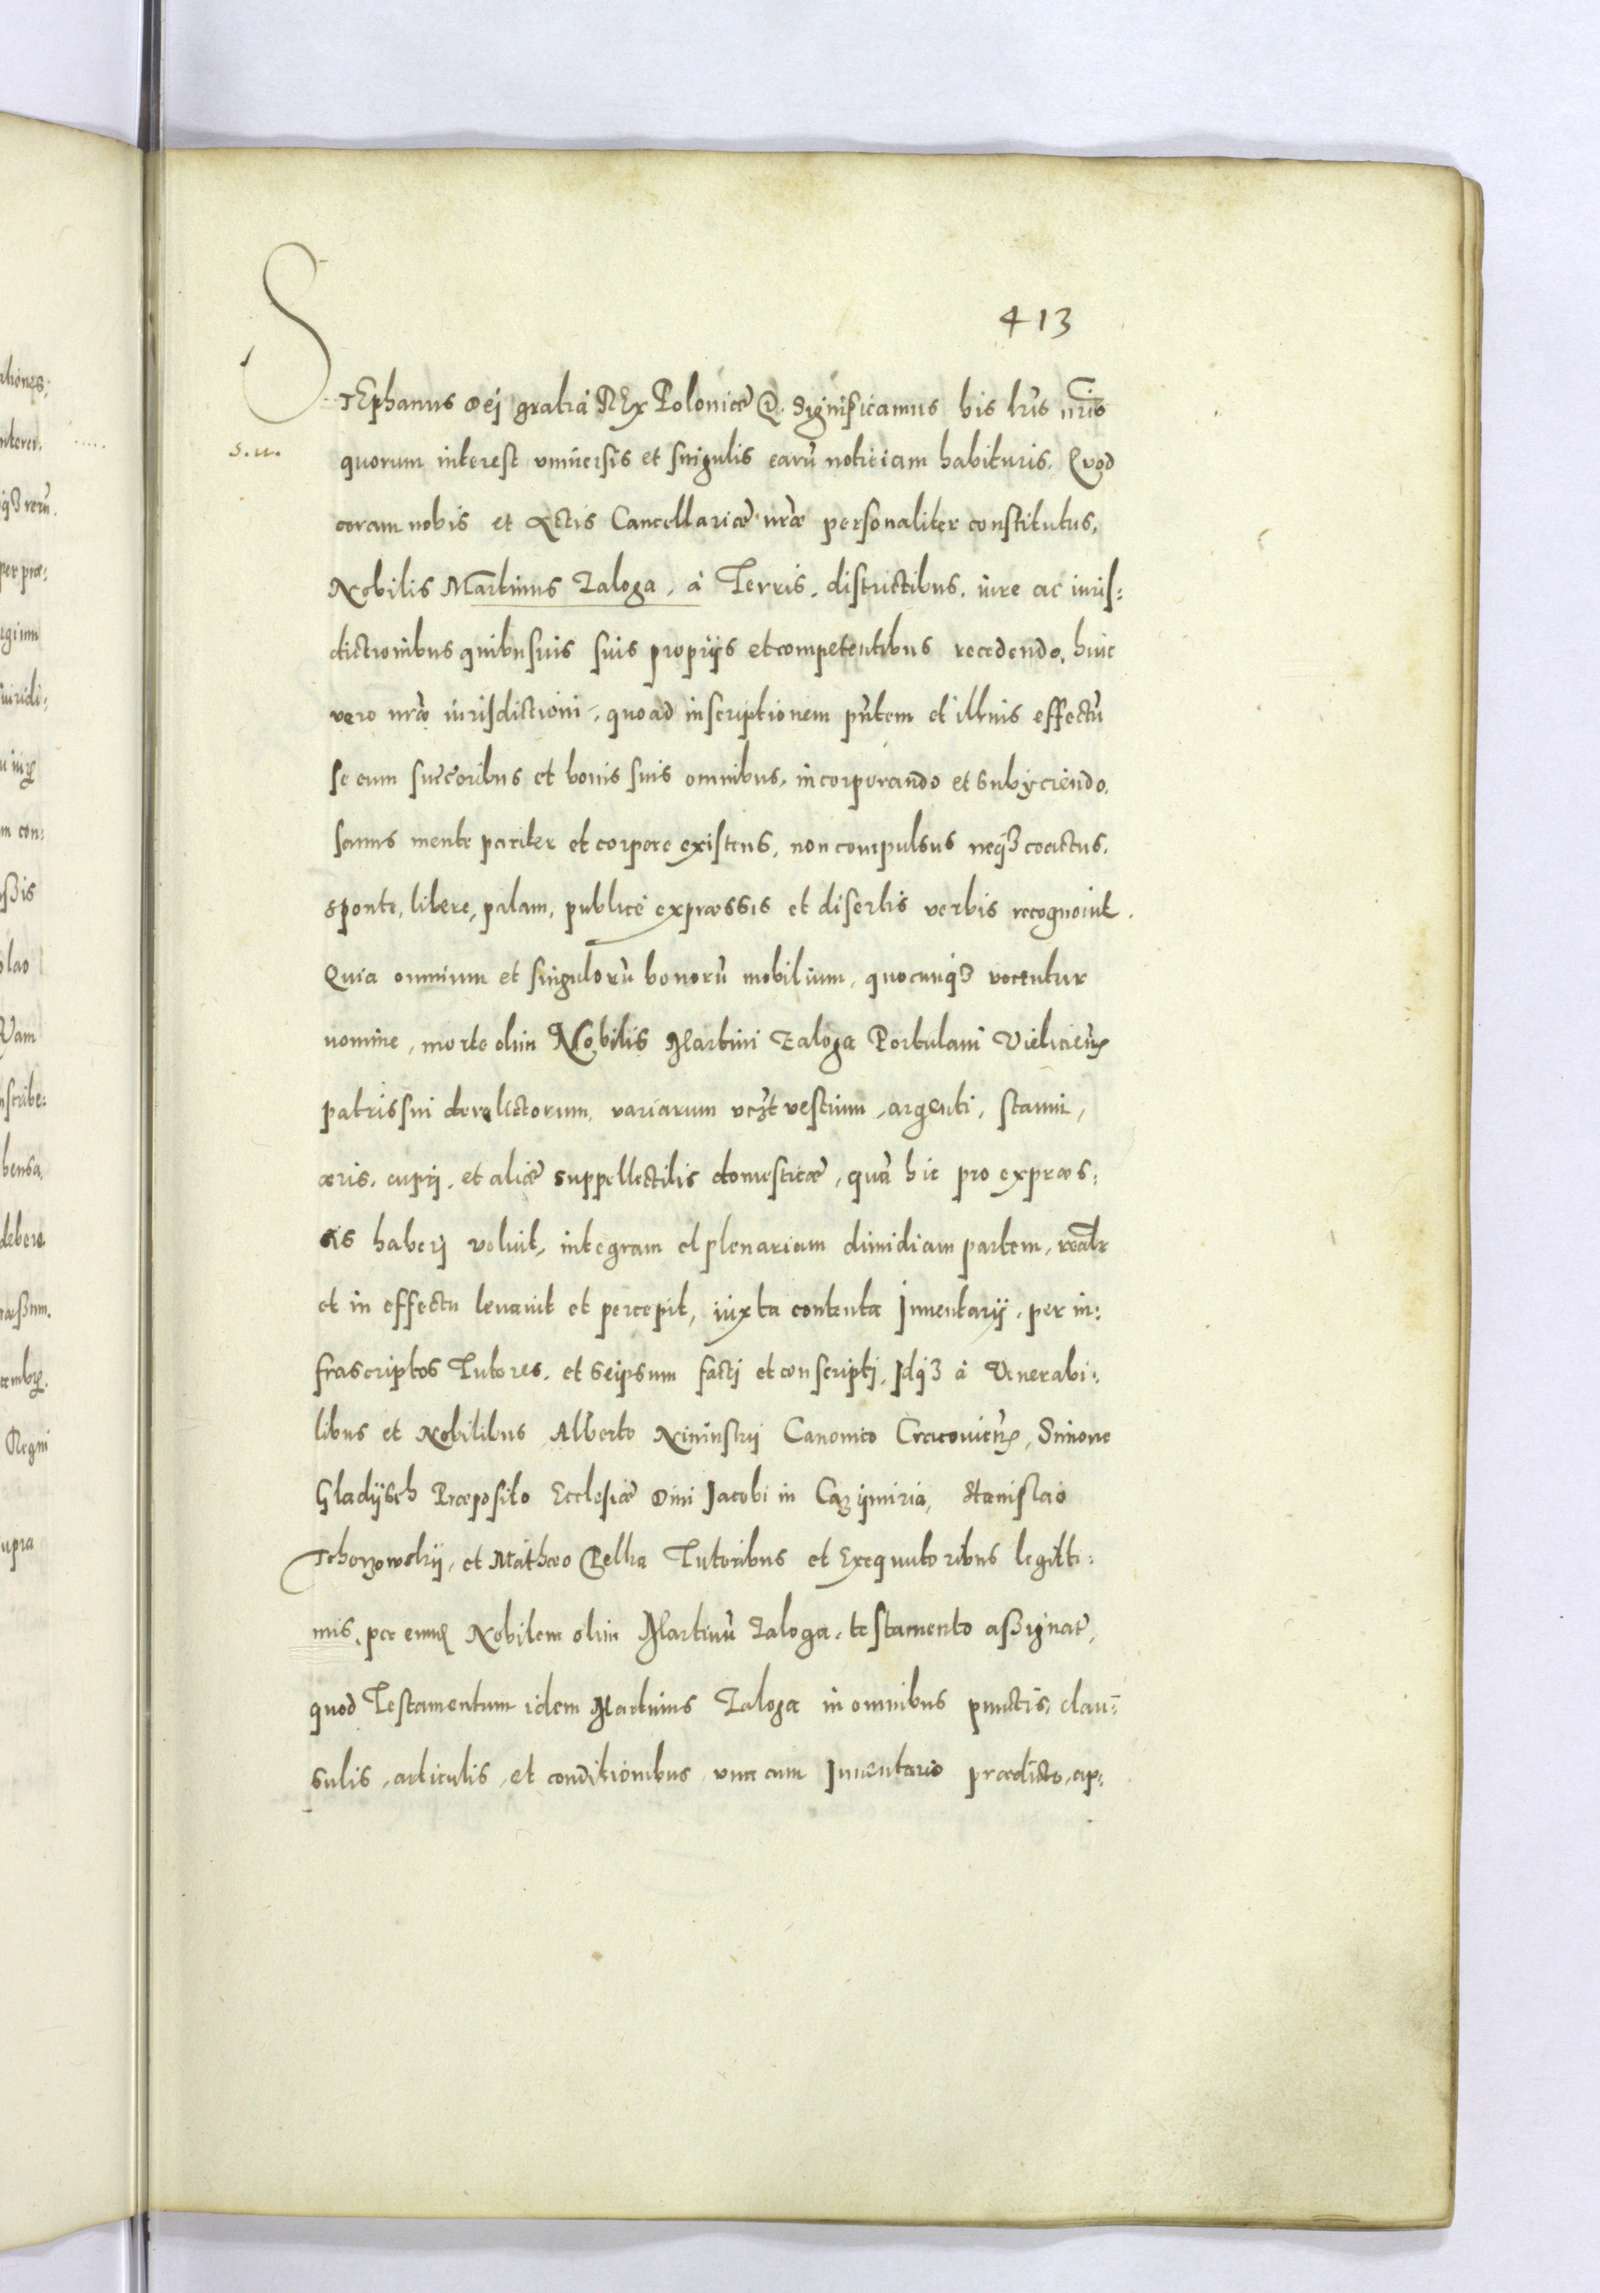 413
STEphanus Dej gratia REx Poloniæ &. Significamus his lris nris
s. u.
quorum interest vniuersis et singulis earũ notitiam habituris. Quod
coram nobis et Actis Cancellariæ nræ personaliter constitutus,
Nobilis Martinus Zaloga, à Terris, districtibus, iure ac iuris:
dictionibus quibusuis suis proprijs et competentibus recedendo, huic
vero nræ iurisdictioni, quo ad inscriptionem pñtem et illius effectũ
se cum succoribus et bonis suis omnibus, incorporando et subijciendo,
sanus mente pariter et corpore existens, non compulsus neq3 coactus,
sponte, libere, palam, publicè expræssis et disertis verbis recognouit.
Quia omnium et singulorũ bonorũ mobilium, quocunq3 vocentur
nomine, morte olim Nobilis Martini Zaloga Portulani Vieliciens
patris sui derelictorum, variarum vczt vestium, argenti, stanni,
æris, cuprj, et aliæ suppellectilis domesticæ, quã hic pro expræs:
sis haberj voluit, integram et plenariam dimidiam partem, realr
et in effectu leuauit et percepit, iuxta contenta Jnuentarij, per in:
frascriptos Tutores, et seipsum factj et conscriptj, Jdq3 à Venerabi:
libus et Nobilibus Alberto Nininskij Canonico Cracouiens, Simone
Gladijsch Præposito Ecclesiæ Diui Jacobi in Cazijmiria, Stanislao
et Mathæo Pelka Tutoribus et Exequutoribus legitti:
mis, per eund Nobilem olim Martinũ Zaloga, testamento aßignat,
quod Testamentum idem Martinus Zaloga in omnibus punctis, clau:
sulis, articulis, et conditionibus vna cum Jnuentario prædicto, ap: